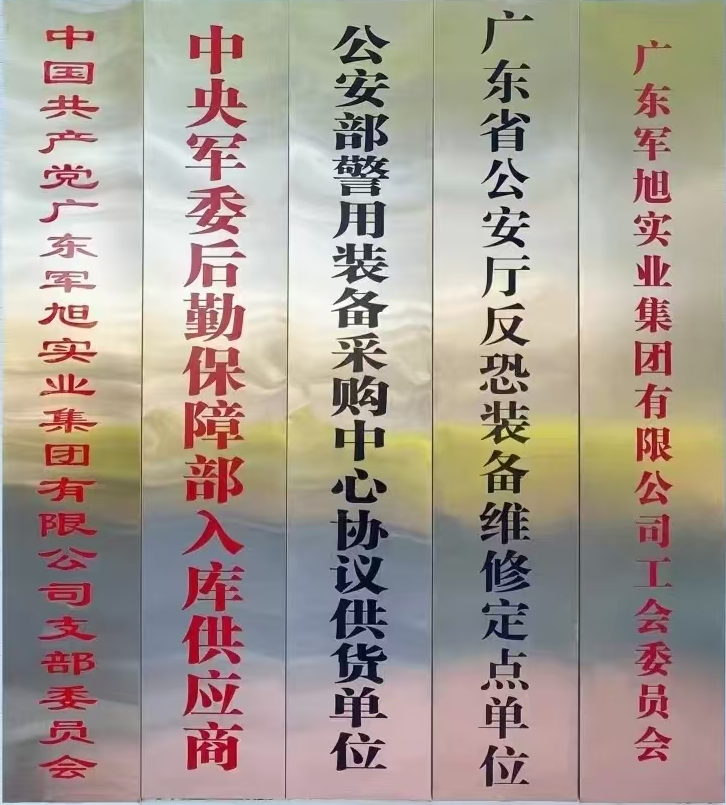 中国共产党广东军旭实业集团有限公司支部委员会
中央军委后勤保障部入库供应商
公安部警用装备采购中心协议供货单位
广东省公安厅反恐装备维修定点单位
广东军旭实业集团有限公司工会委员会